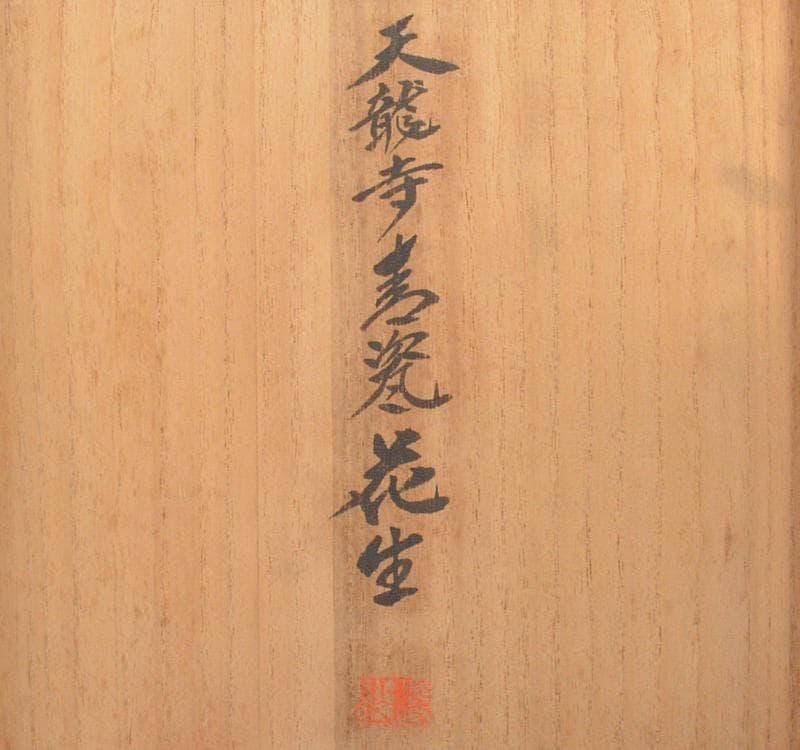 天龍寺青瓷花生